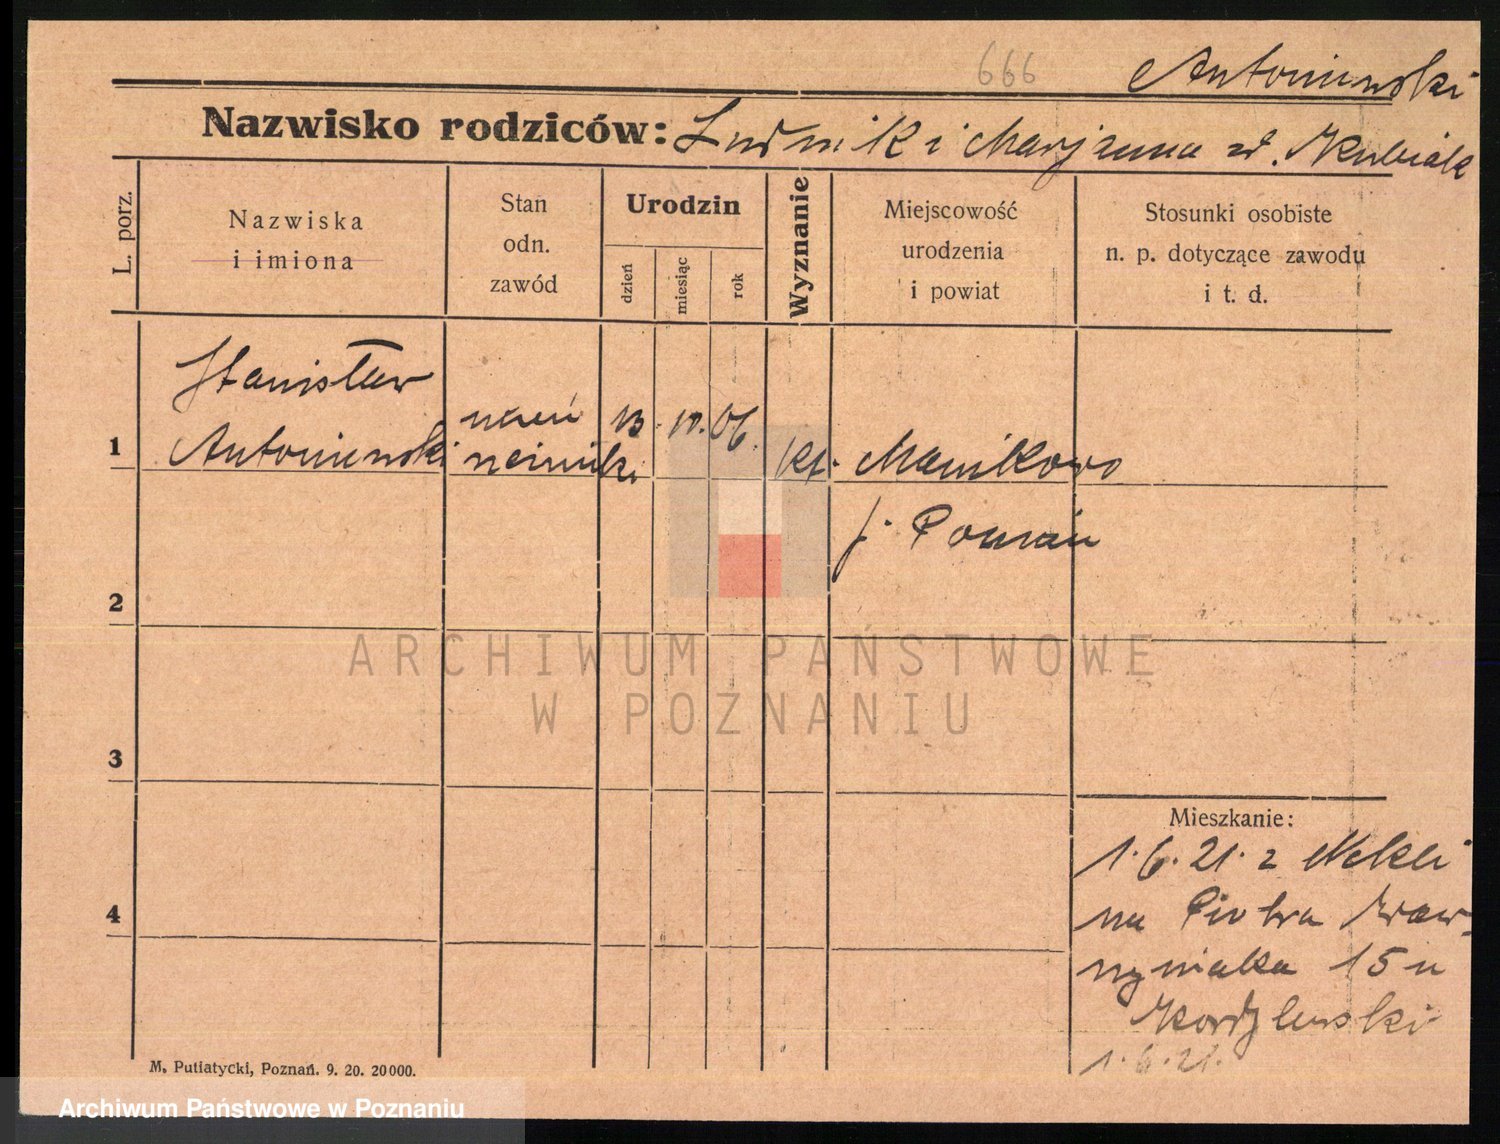 666
Antoniewski
Nazwisko rodziców: Ludwik i Marjanna ur. Kubiak
L. porz.
Nazwiska
i imiona
Stan
odn.
zawód
Urodzin
dzień
miesiąc
rok
Wyznanie
Miejscowość
urodzenia
i powiat
Stosunki osobiste
n. p. dotyczące zawodu
i t. d.
Stanisław
1 Antoniewski
uczeń
06.
kt. Manikowo
p. Poznań
2
3
4
ARCHIWUM PAŃSTWOWE
W POZNANIU
Mieszkanie:
1.6.21. z Nekli
na Piotra Waw-
rzyniaka 15 u
Kordylewski
1.6.21.
M. Putiatycki, Poznań. 9. 20. 20000.
Archiwum Państwowe w Poznaniu